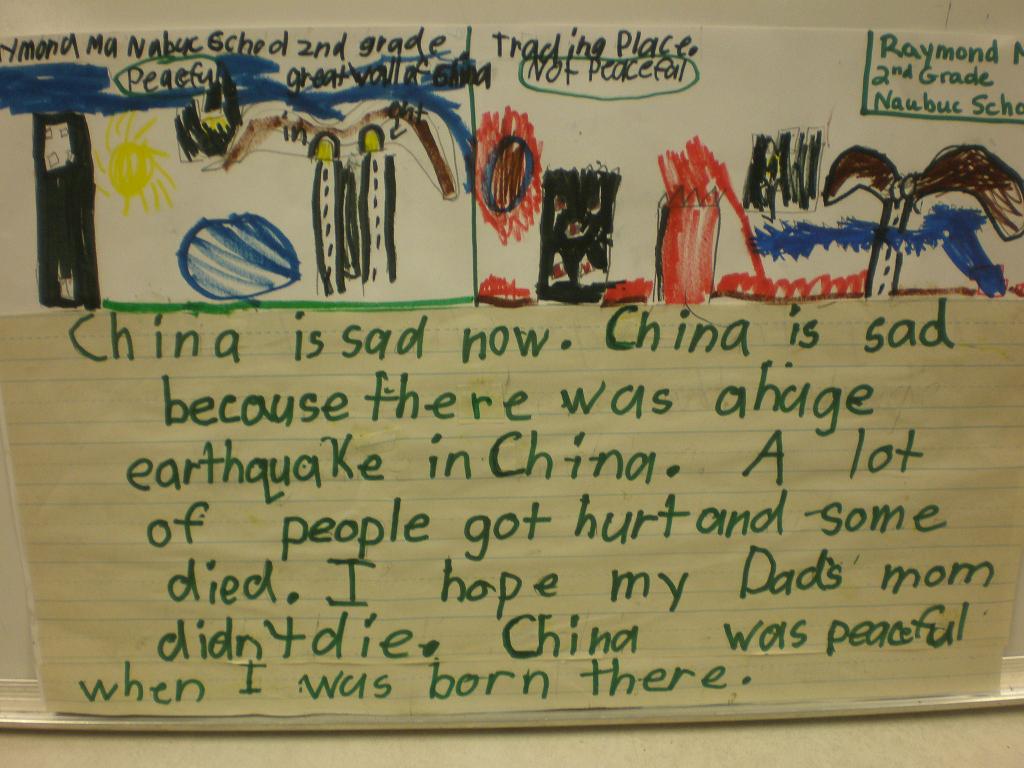 ymond Ma Nabuc School 2nd grade
Peaceful
great wall of China
in
Trading Place.
Not Peaceful
Raymond M
2nd Grade
Naubuc Scho
China is sad now. China is sad
because there was ahuge
earthquake in China. A lot
of people got hurt and some
died. I hope my Dad's mom
didn't die. China was peaceful
when I was born there.